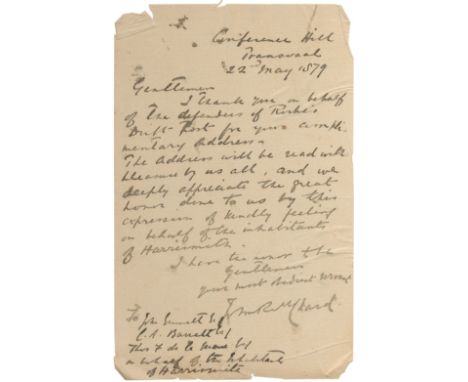 Conference Hill
Transvaal
22nd May 1879
Gentlemen
I thank you on behalf
of the defenders of Rorke's
Drift Post for your compli
mentary Address.
The Address will be read with
pleasure by us all, and we
deeply appreciate the great
honor done to us by this
expression of kindly feeling
on behalf of the inhabitants
of Harrismith.
I have the honor to be
Gentlemen
your most obedient servant
Jno R M Chard.
To
C. A. Barrett Esq
on behalf of the Inhabitants
of Harrismith